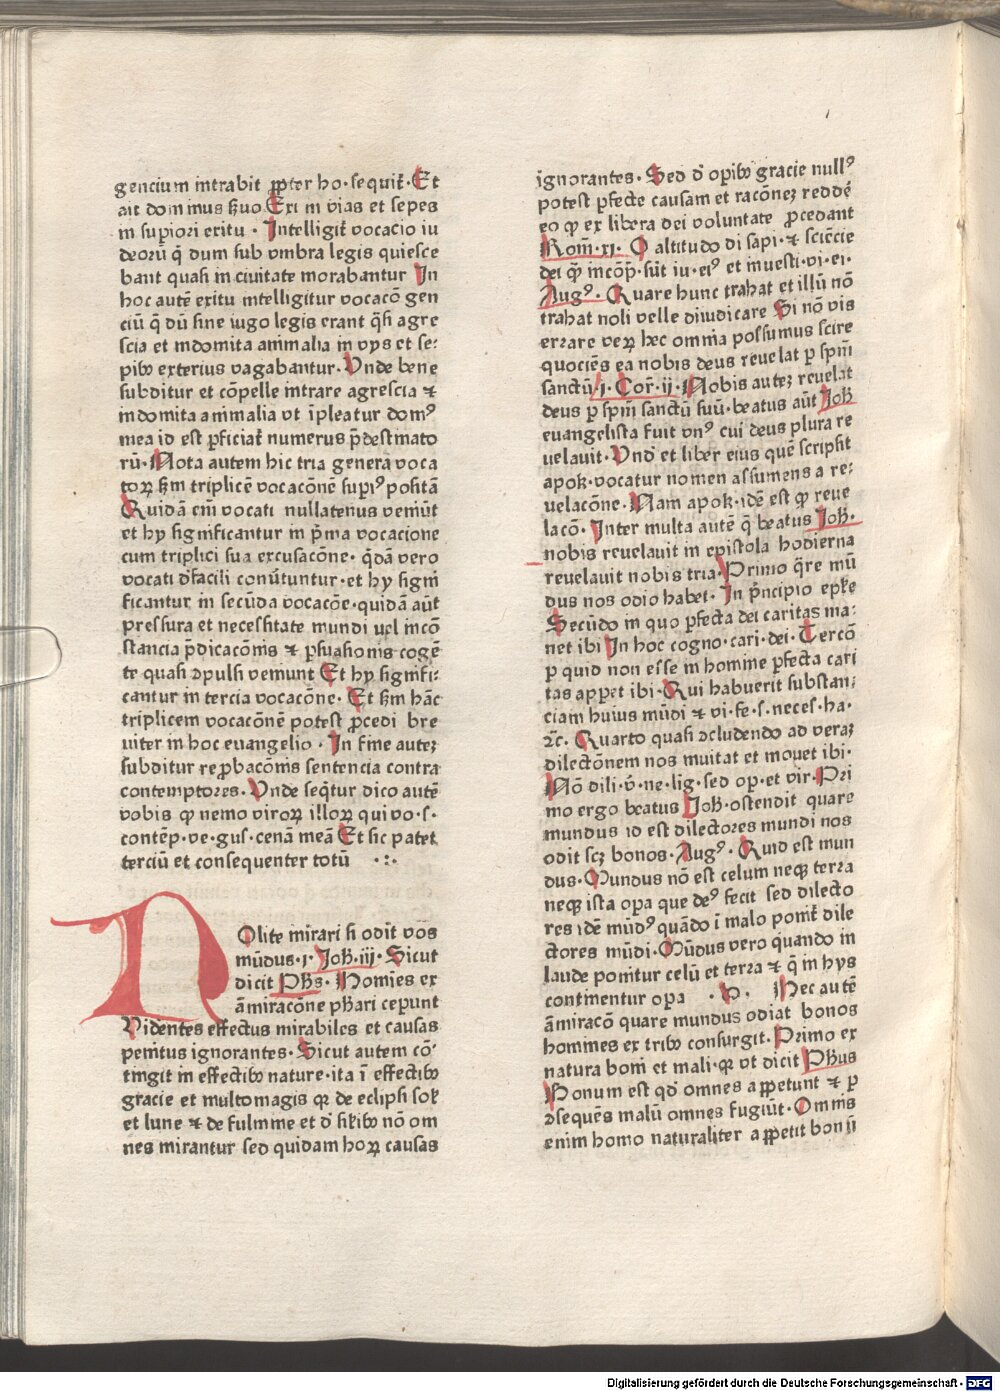 gencium intrabit ꝓpter ho·sequit᷑·Et
ait dominus s̃uo Exi in vias et sepes
in supiori exitu · Intelligit᷑ vocacio iu
deorū q̄ dum sub vmbra legis quiesce
bant quasi in ciuitate morabantur In
hoc autē exitu intelligitur vocacō gen
ciū q̄ dū sine iugo legis erant q̄si agre
stia et indomita animalia in vijs et se⸗
pibꝰ exterius vagabantur·Vnde bene
subditur et cōpelle intrare agrestia ⁊
indomita animalia vt īpleatur domꝰ
mea id est ꝑficiat᷑ numerus p̄destinato
rū·Nota autem hic tria genera voca
toꝝ scd̃m triplicē vocacōnē supiꝰ positā
Quidā em̄ vocati nullatenus veniūt
et hy significantur in p̄ma vocacione
cum triplici sua excusacōne·q̄dā vero
vocati d̄facili conūtuntur·et hy signi
ficantur in secūda vocacōe·quidā aūt
pressura et necessitate mundi vel incō
stancia p̄dicacōnis ⁊ ꝑsuasionis cogē
te quasi ↄpulsi veniunt Et hy signifi⸗
cantur in tercia vocacōne·Et scd̃m hāc
triplicem vocacōnē potest ꝓcedi bre
uiter in hoc euangelio · In fine auteꝫ
subditur reꝓbacōnis sentencia contra
contemptores·Vnde seq̄tur dico autē
vobis ꝙ nemo viroꝝ illoꝝ qui vo·s·
contēp·ve·gus·cenā meā Et sic patet
terciū et consequenter totū ·:·
NOlite mirari si odit vos
mūdus·1·Joh̄·iij·Sicut
dicit Ph̄s·Homines ex
āmiracōne ph̄ari cepunt
Videntes effectus mirabiles et causas
penitus ignorantes·Sicut autem cō⸗
tingit in effectibꝰ nature·ita ī effectibꝰ
gracie et multomagis qꝛ de eclipsi sol̄
et lune ⁊ de fulmine et d̄ sil̄ibꝰ nō om
nes mirantur sed quidam hoꝝ causas
ignorantes·Sed d̄ oꝑibꝰ gracie nullꝰ
potest ꝑfecte causam et racōneꝫ reddē
eo ꝙ ex libera dei voluntate ꝓcedant
Rom̄·xi·O altitudo di sapi·⁊ sciēcie
dei q̄ incōp̄·sūt iu·eiꝰ et inuesti·vi·ei·
Augꝰ·Quare hunc trahat et illū nō
trahat noli velle diiudicare Si nō vis
errare veꝝ hec omnia possumus scire
quociēs ea nobis deus reuelat ꝑ spm̄
sanctū·i·Cor̄·ij·Nobis auteꝫ reuelat
deus ꝑ spm̄ sanctū suū·beatus aūt Joh̄
euangelista fuit vnꝰ cui deus plura re
uelauit·Vnd̄ et liber eius quē scripsit
apok·vocatur nomen assumens a re⸗
uelacōne·Nam apok·idē est ꝙ reue
lacō·Inter multa autē q̄ beatus Joh̄·
nobis reuelauit in epistola hodierna
reuelauit nobis tria·Primo q̄re mū
dus nos odio habet·In p̄ncipio epl̄e
Secūdo in quo ꝑfecta dei caritas ma⸗
net ibi In hoc cogno·cari·dei·Tercō
ꝑ quid non esse in homine ꝑfecta cari
tas apꝑet ibi·Qui habuerit substan⸗
ciam huius mūdi ⁊ vi·fe·s·neces·ha·
⁊c̄·Quarto quasi ↄcludendo ad veraꝫ
dilectōnem nos inuitat et mouet ibi·
Nō dili·v̄·ne·lig·sed op·et vir·Pri
mo ergo beatus Joh̄·ostendit quare
mundus id est dilectores mundi nos
odit scꝫ bonos·Augꝰ·Quid est mun
dus·Mundus nō est celum neqꝫ terra
neqꝫ ista oꝑa que deꝰ fecit sed dilecto
res idē mūdꝰ quādo ī malo ponit᷑ dile
ctores mūdi·Mūdus vero quando in
laude ponitur celū et terra ⁊ q̄ in hys
continentur oꝑa Hec autē
āmiracō quare mundus odiat bonos
hommes ex tribꝰ consurgit·Primo ex
natura boni et mali·qꝛ vt dicit Ph̄us
Bonum est qd̄ omnes aꝑpetunt ⁊ ꝑ
ↄsequēs malū omnes fugiūt·Omnis
enim homo naturaliter aꝑpetit bonū
Digitalisierung gefördert durch die Deutsche Forschungsgemeinschaft - DFG